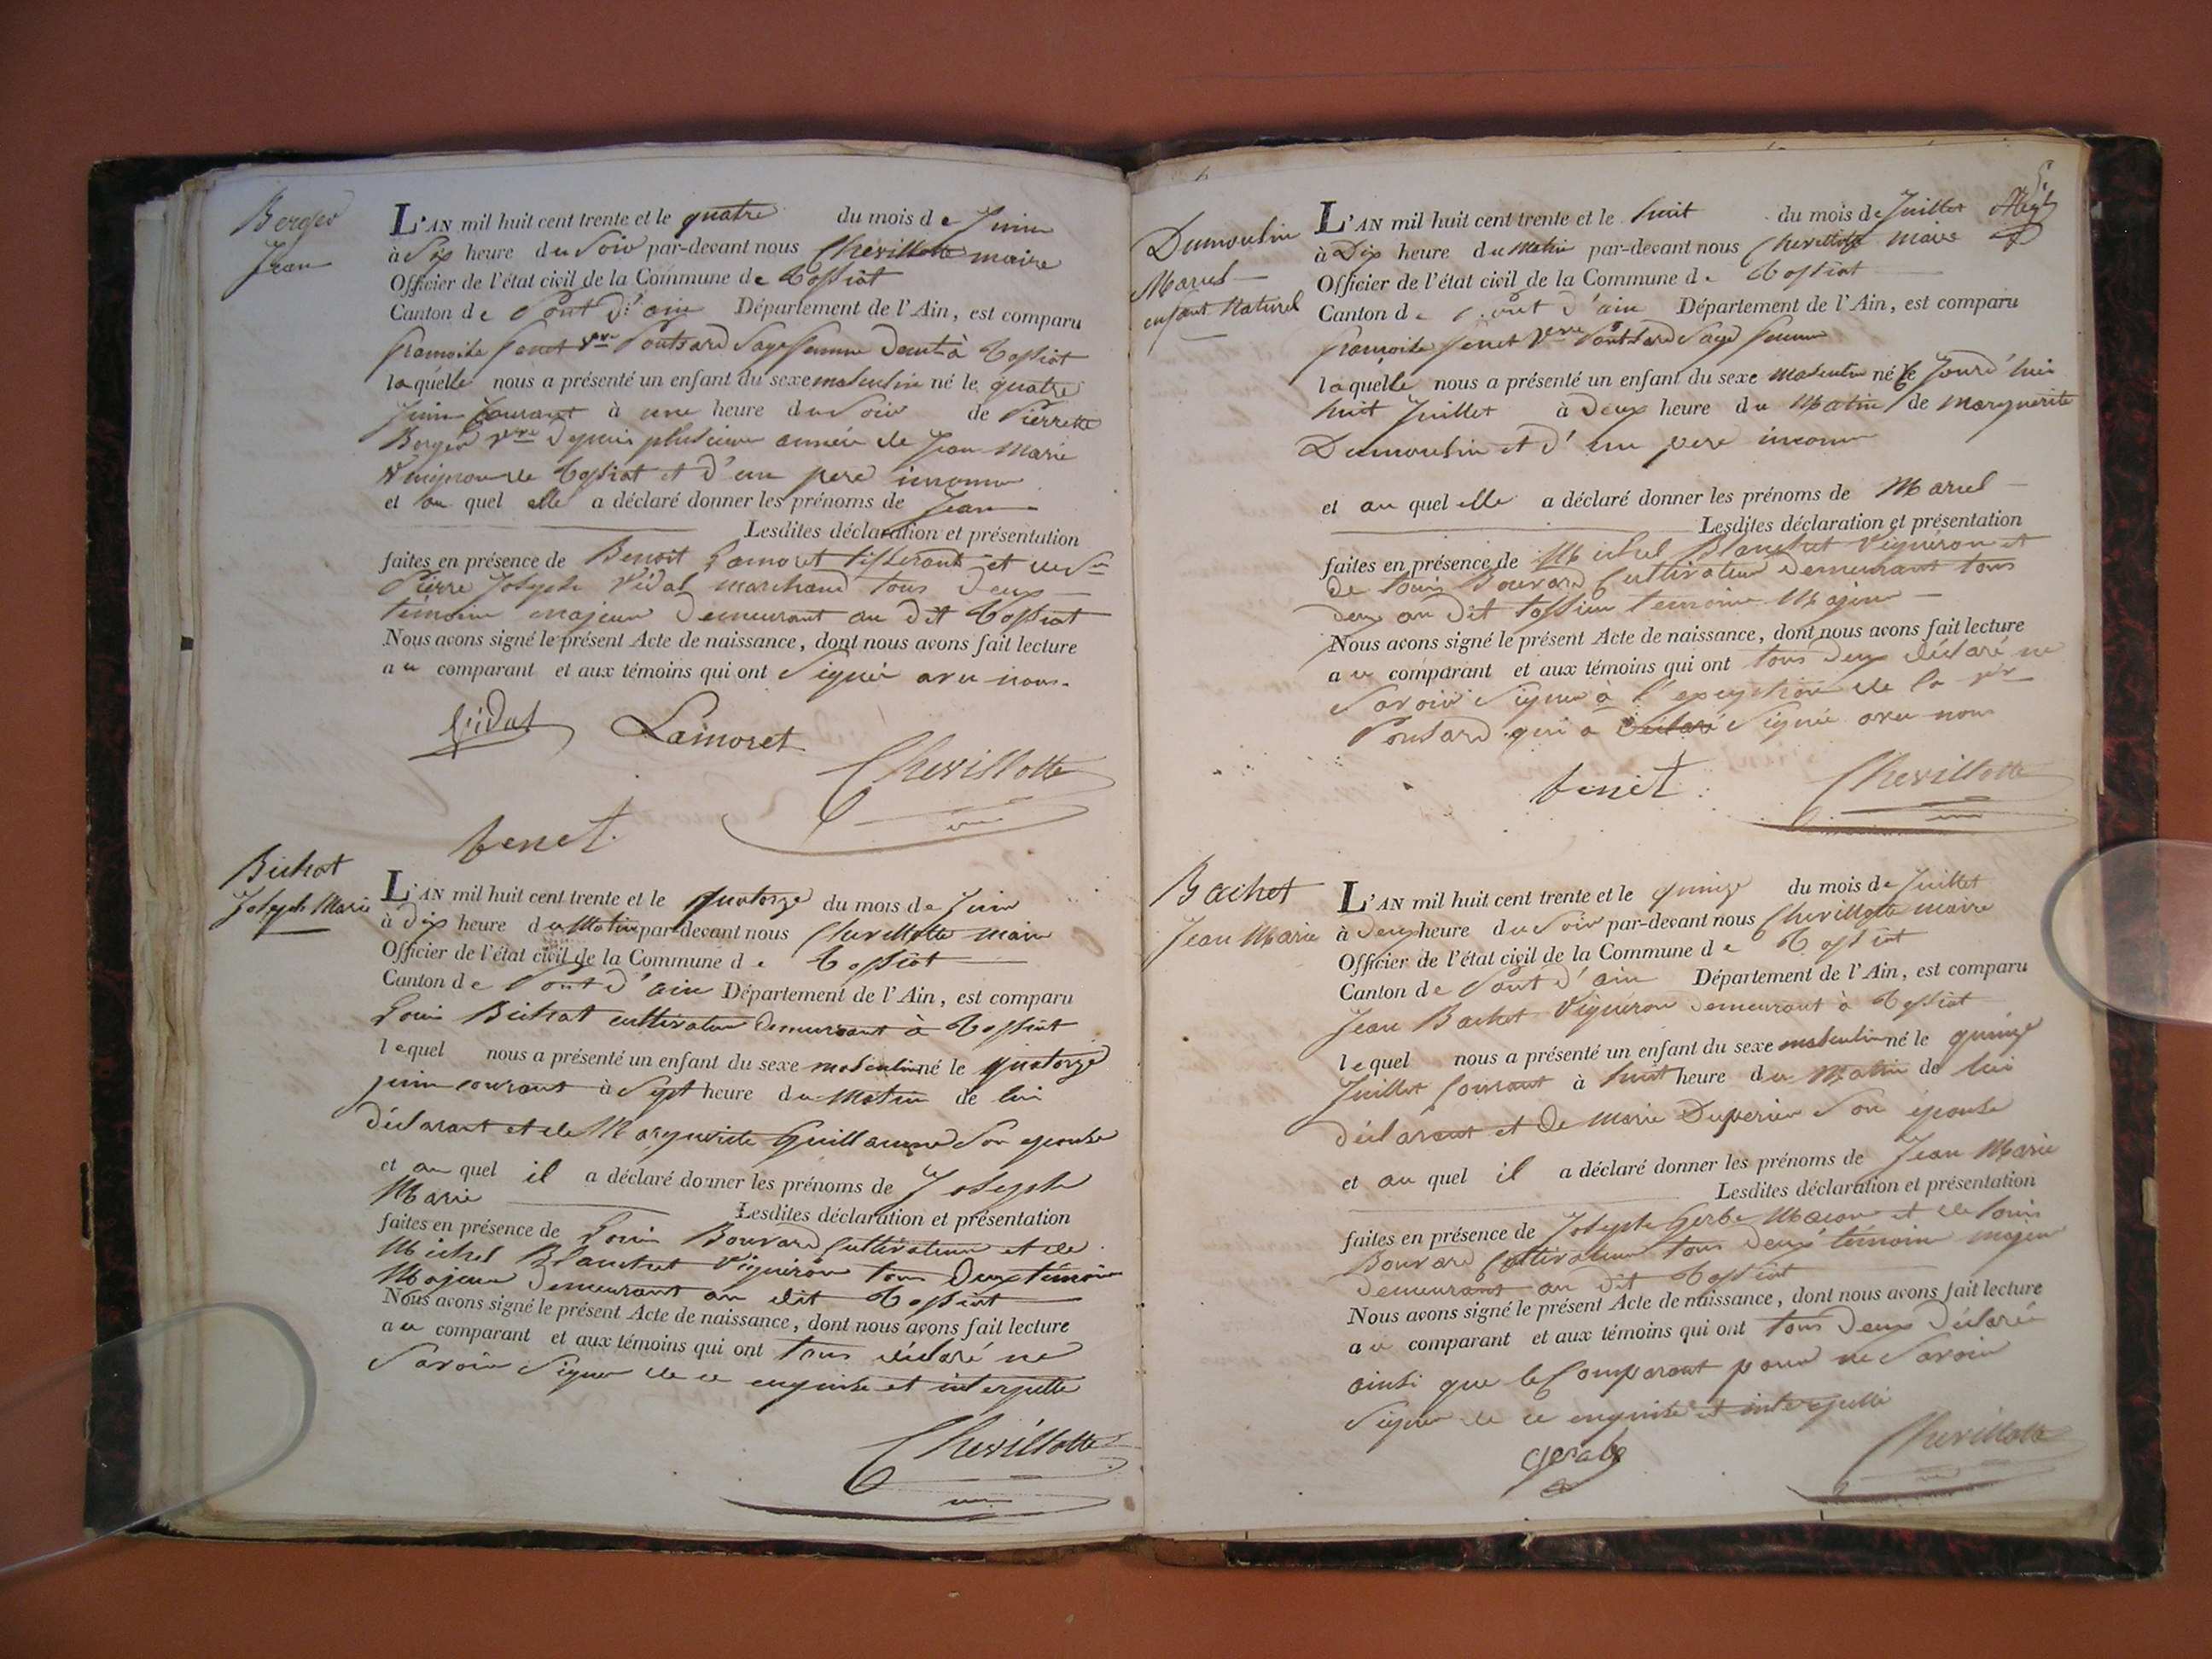 Berger
Jean
L'AN mil huit cent trente et le quatre du mois de Juin
à Six heure du Soir par-devant nous Chevillotte maire
Officier de l'état civil de la Commune de Tossiat
Canton de Pont d'ain Département de l'Ain, est comparu
francoise fenet Vve Pontsard Sage femme Demt à Tossiat
laquelle nous a présenté un enfant du sexe masculin né le quatre
Juin Courant à une heure du Soir de Pierrette
Berger Vve Depuis plusieur année de Jean Marie
de Tossiat et d'un pere inconnu
et au quel elle a déclaré donner les prénoms de Jean
Lesdites déclaration et présentation
faites en présence de Benoit Lamoret tisserant et de Sr
Pierre Joseph Vidal marchand tous deux
témoin majeur Demeurant au dit Tossiat
Nous avons signé le présent Acte de naissance, dont nous avons fait lecture
au comparant et aux témoins qui ont Signé avec nous.
Vidal Lamoret
Chevillotte
fenet
Bichat
Joseph Marie
L'AN mil huit cent trente et le quatorze du mois de Juin
à Dix heure du Matin par-devant nous Chevillotte maire
Officier de l'état civil de la Commune de Tossiat
Canton de Pont d'ain Département de l'Ain, est comparu
Louis Bichat cultivateur Demeurant à Tossiat
lequel nous a présenté un enfant du sexe masculin né le quatorze
juin courant à Sept heure du Matin de lui
déclarant et de Marguerite Guillaume Son epouse
et au quel il a déclaré donner les prénoms de Joseph
Marie Lesdites déclaration et présentation
faites en présence de Louis Bouvard Cultivateur et de
Michel Blanchet Vigneron tous Deux témoin
Majeur Demeurant au dit Tossiat
Nous avons signé le présent Acte de naissance, dont nous avons fait lecture
au comparant et aux témoins qui ont tous déclaré ne
Savoir Signer de ce enquise et interpellé
Chevillotte
Dumoulin
Marcel
enfant Naturel
L'AN mil huit cent trente et le huit du mois de Juillet
à Dix heure du Matin par-devant nous Chevillotte Maire
Officier de l'état civil de la Commune de Tossiat
Canton de Pont d'ain Département de l'Ain, est comparu
francoise fenet Vve Pontsard Sage femme
laquelle nous a présenté un enfant du sexe masculin né le Jourd'hui
huit Juillet à Deux heure du Matin de Marguerite
Dumoulin et d'un pere inconnu
et au quel elle a déclaré donner les prénoms de Marcel
Lesdites déclaration et présentation
faites en présence de Michel Blanchet Vigneron et
de Louis Bouvard Cultivateur Demeurant tous
deux au dit témoin Majeur
Nous avons signé le présent Acte de naissance, dont nous avons fait lecture
au comparant et aux témoins qui ont tous deux déclaré ne
Savoir Signer à l'exception de la
Ponsard qui a déclaré Signé avec nous
fenet Chevillotte
Bachet
Jean Marie
L'AN mil huit cent trente et le quinze du mois de Juillet
à Deux heure du Soir par-devant nous Chevillotte maire
Officier de l'état civil de la Commune de Tossiat
Canton de Pont d'ain Département de l'Ain, est comparu
Jean Bachet Vigneron Demeurant à Tossiat
lequel nous a présenté un enfant du sexe masculin né le quinze
Juillet Courant à huit heure du Matin de lui
déclarant et de Marie Duperier Son épouse
et au quel il a déclaré donner les prénoms de Jean Marie
Lesdites déclaration et présentation
faites en présence de Joseph Gerbe Macon et de Louis
Bouvard Cultivateur tous deux témoin majeur
Demeurant au dit Tossiat
Nous avons signé le présent Acte de naissance, dont nous avons fait lecture
au comparant et aux témoins qui ont tous Deux déclaré
ainsi que le Comparant pour ne Savoir
Signer de ce enquise et interpellé
Chevillotte